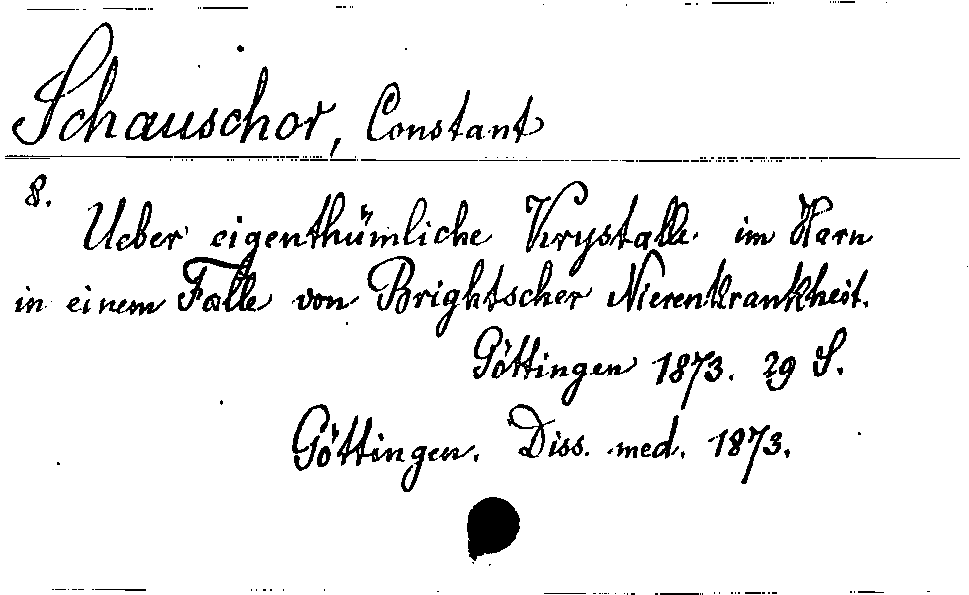 Schauschor, Constant
8.
Ueber eigenthümliche Krystalle im Harn
in einem Falle von Brightscher Nierenkrankheit.
Göttingen 1873. 29 S.
Göttingen. Diss. med. 1873.